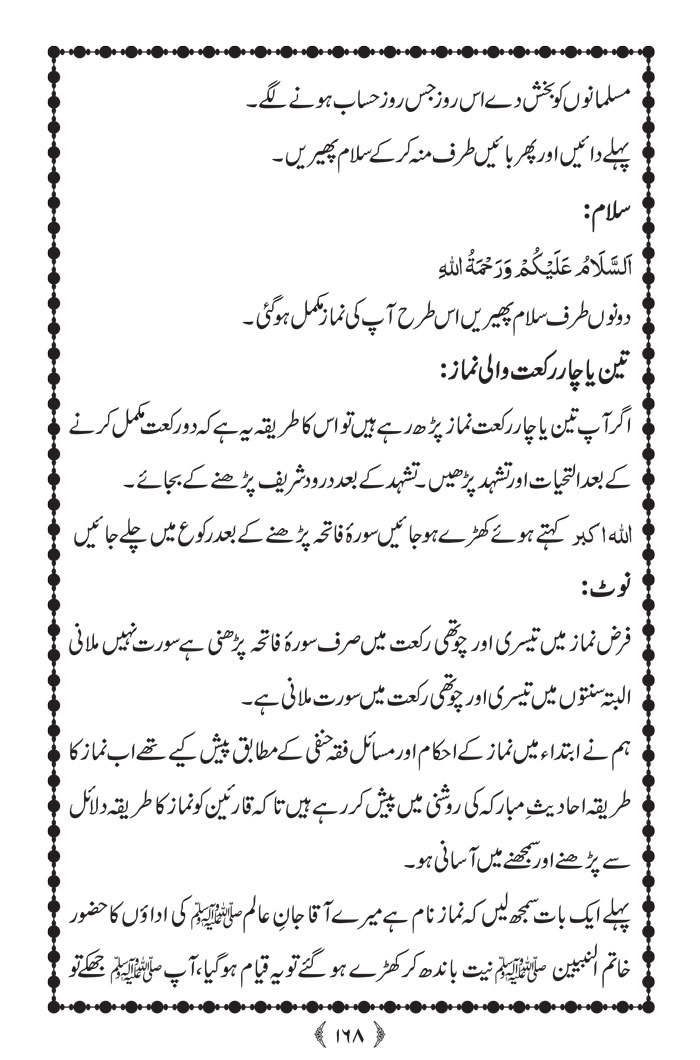 مسلمانوں کو بخش دے اس روز جس روز حساب ہونے لگے۔
پہلے دائیں اور پھر بائیں طرف منہ کر کے سلام پھیریں۔
سلام:
اَلسَّلَامُ عَلَیْکُمْ وَرَحْمَةُ اللهِ
دونوں طرف سلام پھیریں اس طرح آپ کی نماز مکمل ہوگئی۔
تین یا چار رکعت والی نماز:
اگر آپ تین یا چار رکعت نماز پڑھ رہے ہیں تو اس کا طریقہ یہ ہے کہ دو رکعت مکمل کرنے
کے بعد التحیات اور تشہد پڑھیں۔ تشہد کے بعد درود شریف پڑھنے کے بجائے۔
اللہ اکبر کہتے ہوئے کھڑے ہو جائیں سورۂ فاتحہ پڑھنے کے بعد رکوع میں چلے جائیں
نوٹ:
فرض نماز میں تیسری اور چوتھی رکعت میں صرف سورۂ فاتحہ پڑھنی ہے سورت نہیں ملانی
البتہ سنتوں میں تیسری اور چوتھی رکعت میں سورت ملانی ہے۔
ہم نے ابتداء میں نماز کے احکام اور مسائل فقہ حنفی کے مطابق پیش کیے تھے اب نماز کا
طریقہ احادیثِ مبارکہ کی روشنی میں پیش کر رہے ہیں تا کہ قارئین کو نماز کا طریقہ دلائل
سے پڑھنے اور سمجھنے میں آسانی ہو۔
پہلے ایک بات سمجھ لیں کہ نماز نام ہے میرے آقا جانِ عالم ﷺ کی اداؤں کا حضور
خاتم النبیین ﷺ نیت باندھ کر کھڑے ہو گئے تو یہ قیام ہوگیا، آپ ﷺ جھکے تو
﴿۱۶۸﴾